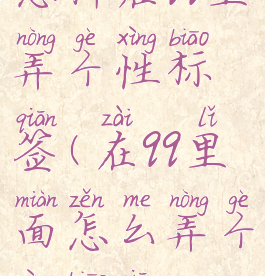 nòng gè xìng biāo
弄个性标
qiān zài lǐ
签(在99里
miàn zěn me nòng gè
面怎么弄个